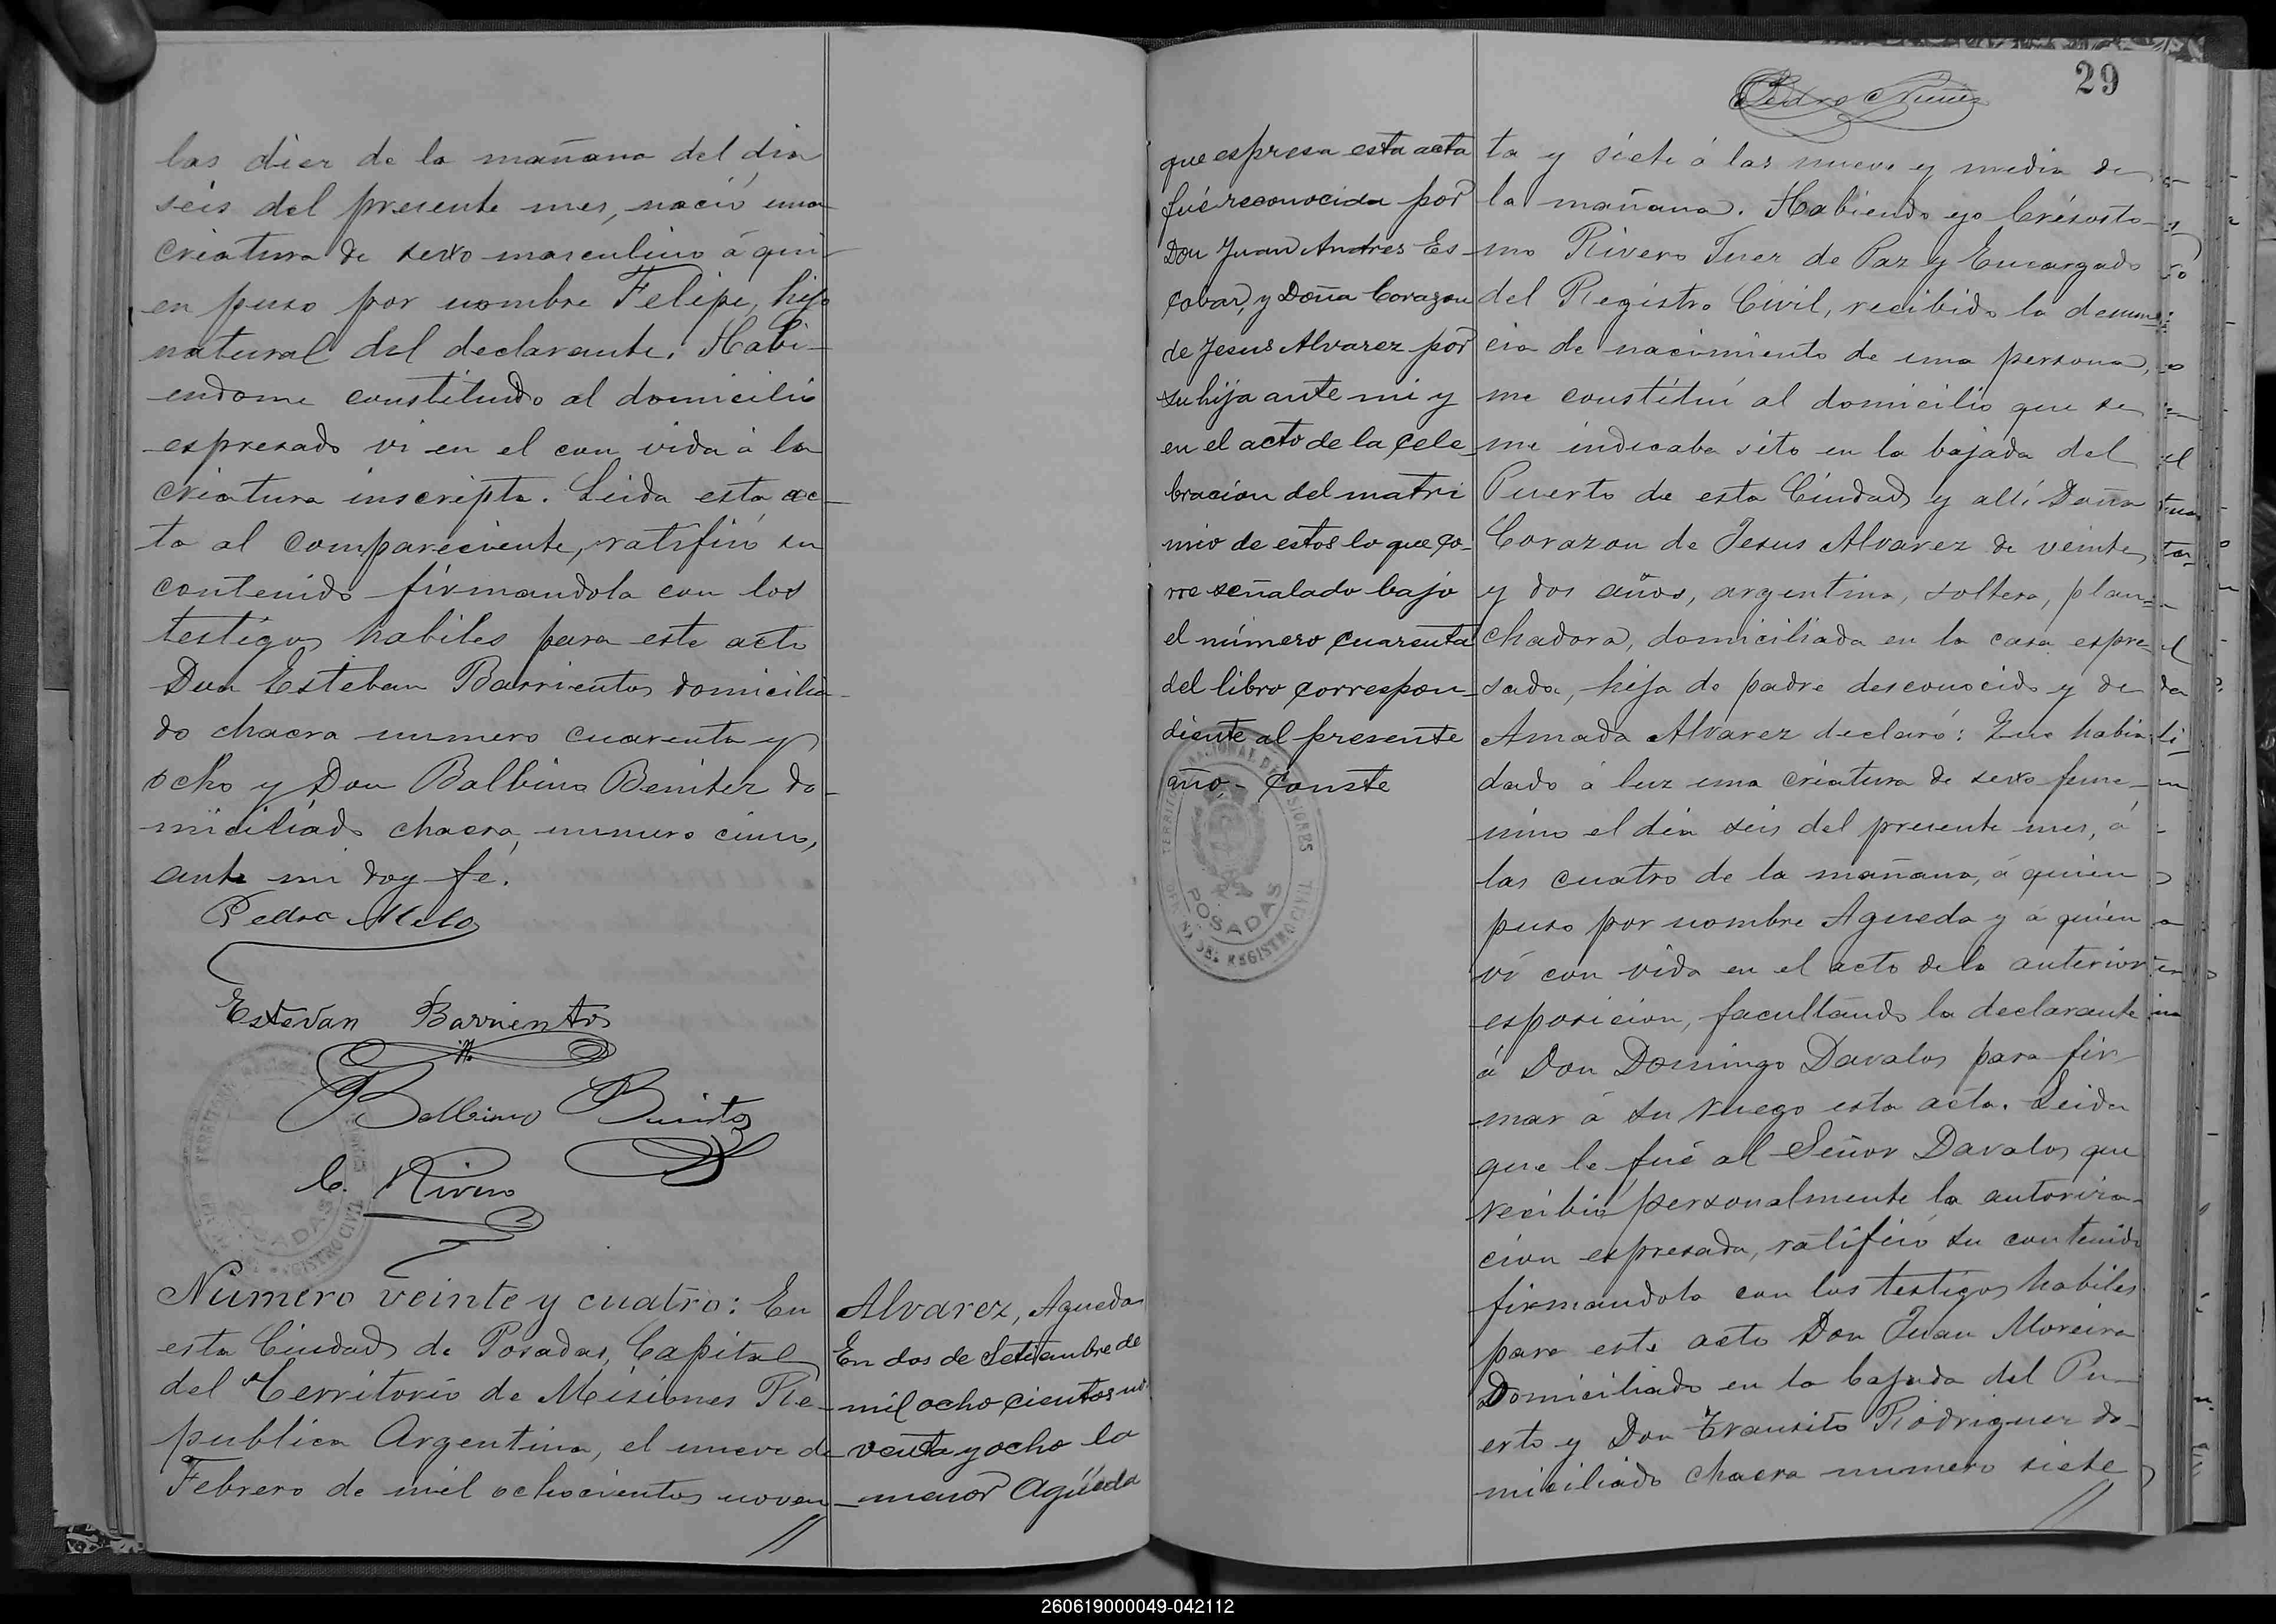 las diez de la mañana del dia
seis del presente mes, nació una
criatura de sexo masculino á qui-
en puso por nombre Felipe, hijo
natural del declarante. Habi-
endome constituido al domicilio
espresado vi en el con vida á la
criatura inscripta. Leida esta ac-
ta al compareciente, ratificó su
contenido firmandola con los
testigos habiles para este acto
Don Esteban Barrientos domicilia-
do chacra numero cuarenta y
ocho y Don Balbino Benitez do-
miciliado chacra numero cinco,
ante mi doy fé.
Pedro Melo
Estevan Barrientos
Balbino Benitez
C. Rivero
Numero veinte y cuatro: En
esta Ciudad de Posadas, Capital
del Territorio de Misiones Re-
publica Argentina, el nueve de
Febrero de mil ochocientos noven-
Alvarez, Agueda
En dos de Setiembre de
mil ochocientos no
venta y ocho la
menor Agüeda
29
Pedro Nuñez
que espresa esta acta
fué reconocida por
Don Juan Andres Es-
cobar, y Doña Corazon
de Jesus Alvarez por
su hija ante mi y
en el acto de la cele-
bracion del matri
nio de estos lo que co-
rre señalado bajo
el número cuarenta
del libro correspon-
diente al presente
año - Conste
POSADAS
DEL REGISTRO CIVIL
ta y siete á las nueve y media de
la mañana. Habiendo yo Crisosto-
mo Rivero Juez de Paz y Encargado
del Registro Civil, recibido la denun-
cia de nacimiento de una persona,
me constituí al domicilio que se
me indicaba sito en la bajada del
Puerto de esta Ciudad y allí Doña
Corazon de Jesus Alvarez de veinte
y dos años, argentina, soltera, plan-
chadora, domiciliada en la casa espre-
sada, hija de padre desconocido y de
Amada Alvarez declaró: Que habia
dado á luz una criatura de sexo feme-
nino el dia seis del presente mes, á
las cuatro de la mañana, á quien
puso por nombre Agueda y á quien
ví con vida en el acto de la anterior
esposicion, facultando la declarante
á Don Domingo Davalos para fir-
mar á su ruego esta acta. Leida
que le fué al Señor Davalos que
recibió personalmente la autoriza-
cion espresada, ratificó su contenido
firmandola con los testigos habiles
para este acto Don Juan Moreira
Domiciliado en la bajada del Pu-
erto y Don Transito Rodriguez do-
miciliado chacra numero siete
260619000049-042112